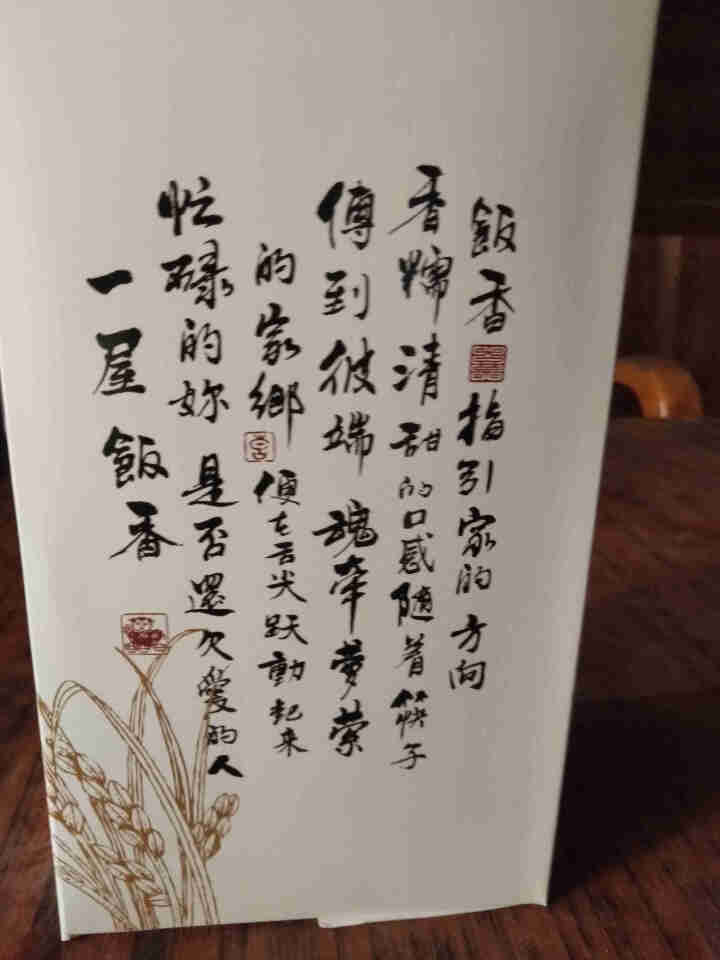 飯香 指引家的方向
香糯清甜的口感随着筷子
傳到彼端 魂牽夢縈
的家鄉 便在舌尖跃動起来
忙碌的妳 是否還欠愛的人
一屋飯香